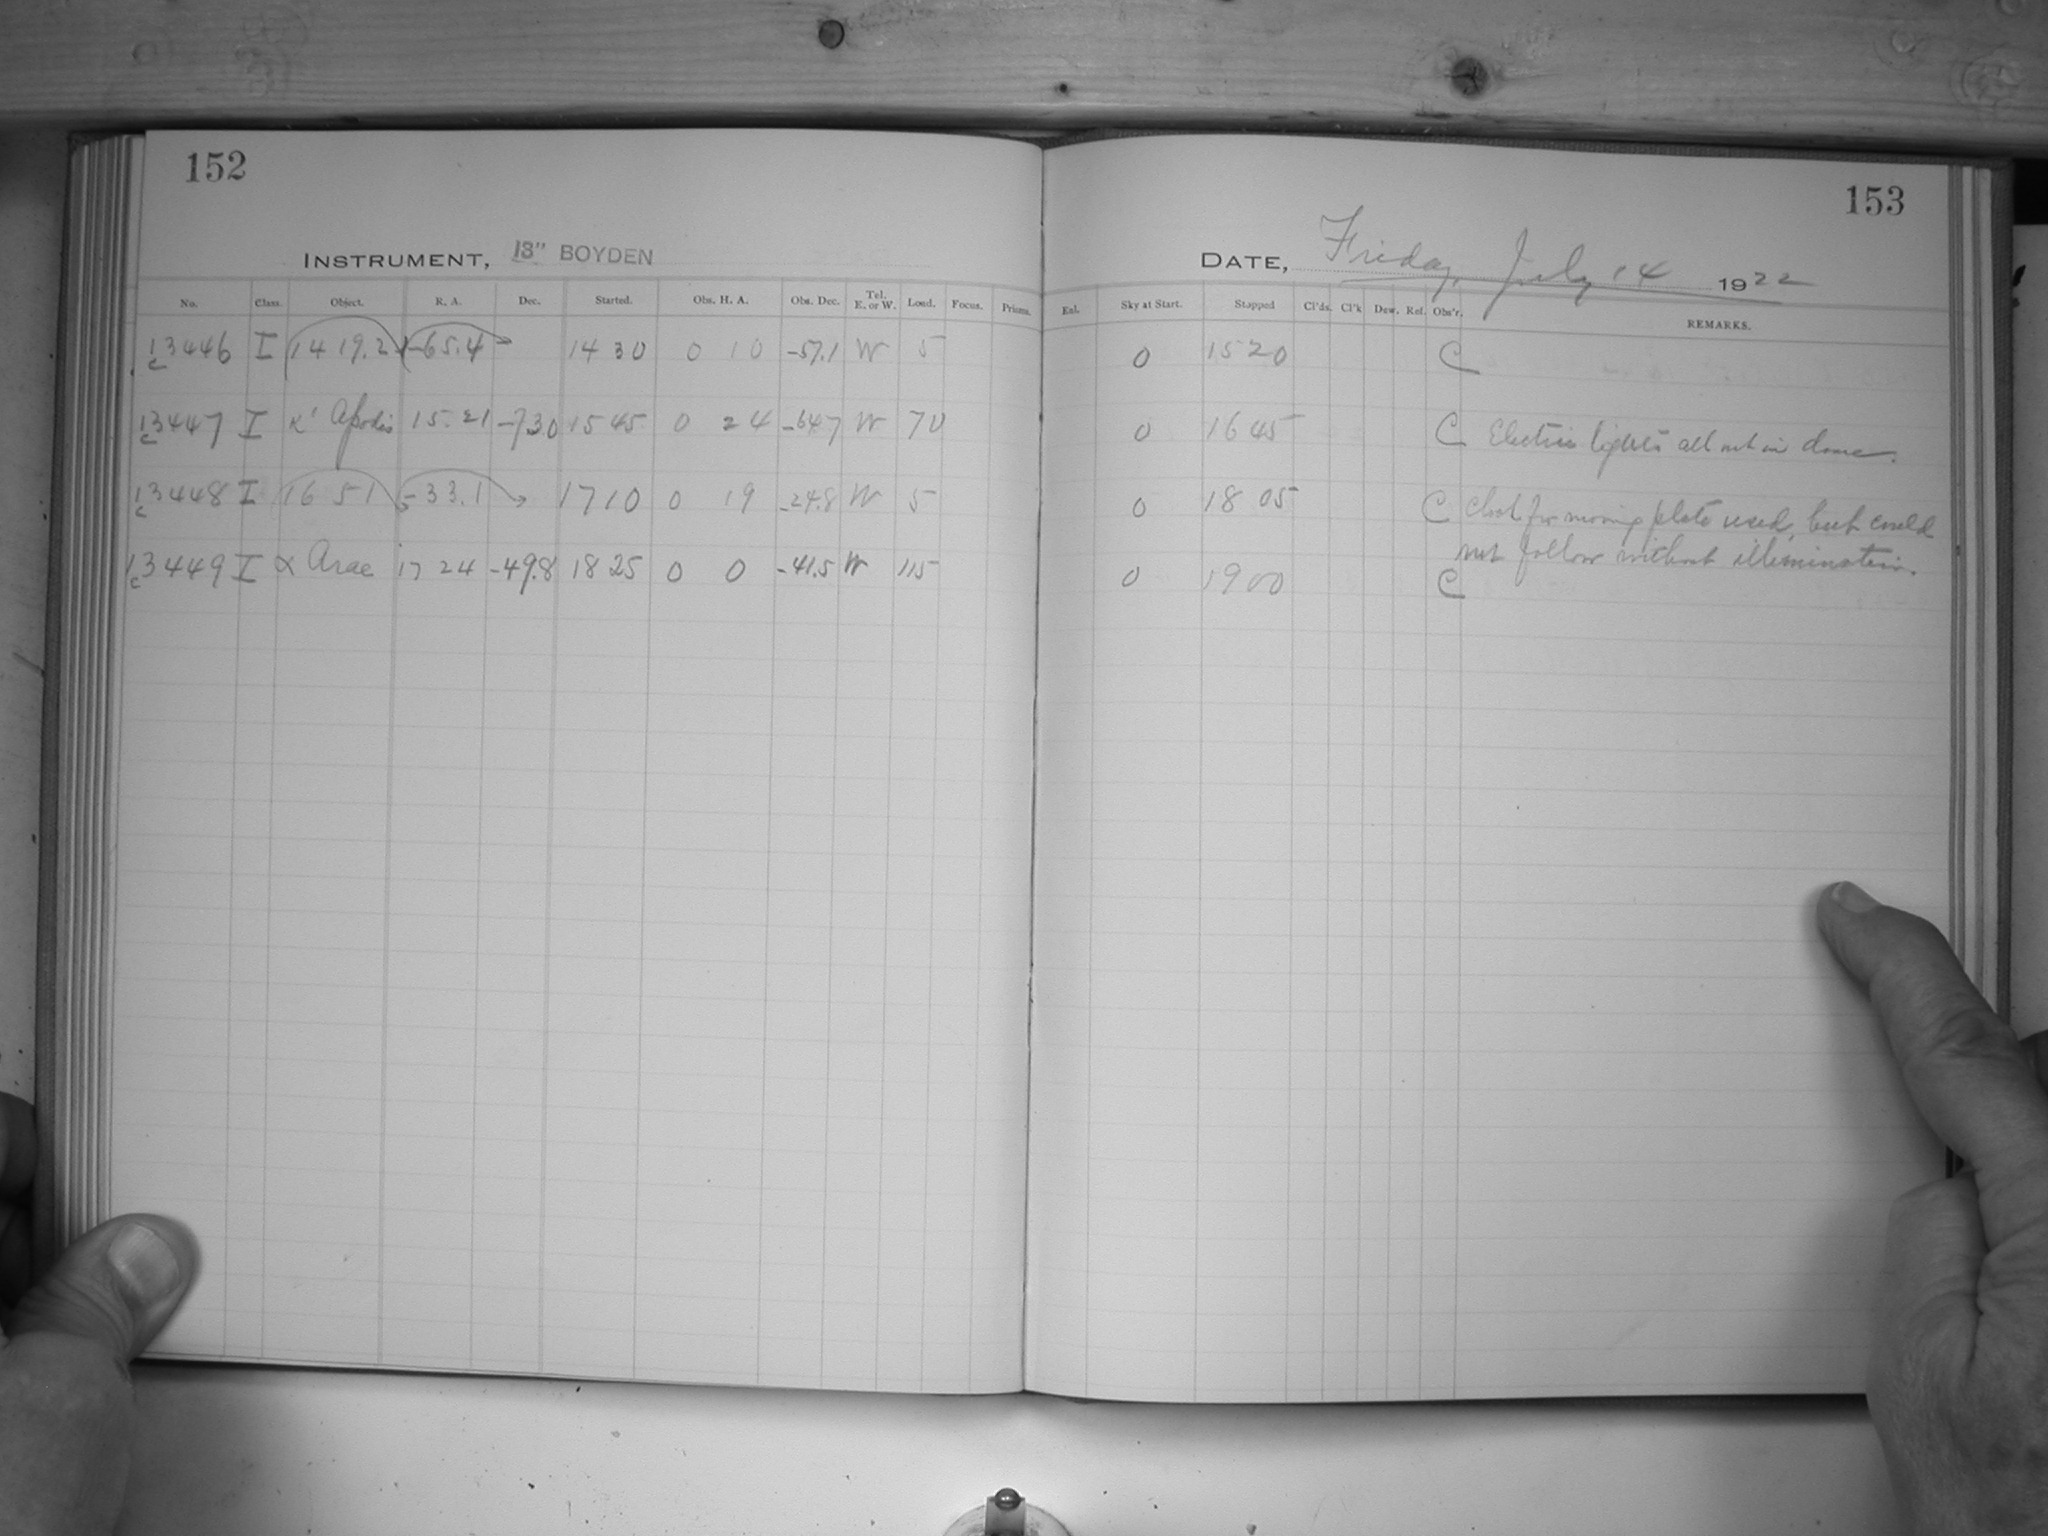 152
153
INSTRUMENT, 13" BOYDEN
DATE, Friday, July 14 1922
No. Class. Object. R. A. Dec. Started. Obs. H. A. Obs. Dec. Tel. E. or W. Load. Focus. Prisms. Enl. Sky at Start. Stopped Cl'ds. Cl'k Dew. Ref. Obs'r. REMARKS.
13446 I 14 19.2 -65.4 14 30 0 10 -57.1 W 5 0 15 20 C
c
13447 I κ' Apodis 15. 21 -73.0 15 45 0 24 -64.7 W 70 0 16 45 C Electric lights all out in dome.
c
13448 I 16 51 -33.1 17 10 0 19 -24.8 W 5 0 18 05 C Clock for moving plate used, but could
c
not follow without illumination.
13449 I α Arae 17 24 -49.8 18 25 0 0 -41.5 W 115 0 19 00 C
c